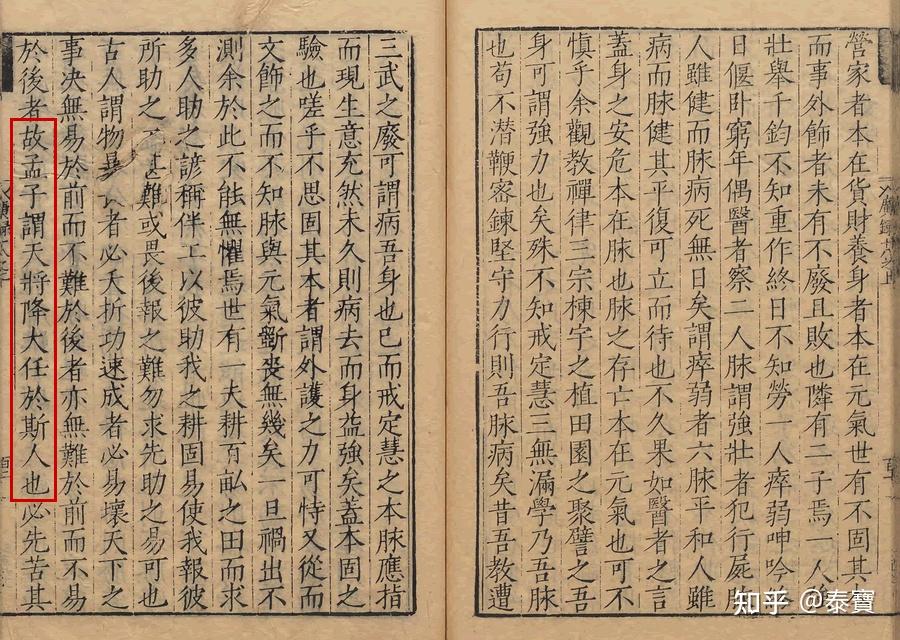 營家者本在貨財養身者本在元氣世有不固其本
而事外飾者未有不廢且敗也隣有二子焉一人
壯舉千鈞不知重作終日不知勞一人瘁弱呻吟
日偃卧窮年偶醫者察二人脉謂強壯者犯行屍脉
人雖健而脉病死無日矣謂瘁弱者六脉平和人雖
病而脉健其平復可立而待也不久果如醫者之言
蓋身之安危本在脉也脉之存亡本在元氣也可不
慎乎余觀教禪律三宗棟宇之植田園之聚譬之吾
身可謂強力也矣殊不知戒定慧三無漏學乃吾脉
也苟不潜鞭密鍊堅守力行則吾脉病矣昔吾教遭
三武之廢可謂病吾身也已而戒定慧之本脉應指
而現生意充然未久則病去而身益強矣蓋本固之
驗也嗟乎不思固其本者謂外護之力可恃又從而
文飾之而不知脉與元氣斵喪無幾矣一旦禍出不
測余於此不能無懼焉世有一夫耕百畝之田而求
多人助之諺稱伴工以彼助我之耕固易使我報彼
所助之甚難或畏後報之難勿求先助之易可也
古人謂物暴者必夭折功速成者必易壞天下之
事决無易於前而不難於後者亦無難於前而不易
於後者故孟子謂天將降大任於斯人也必先苦其
知乎 @泰寶